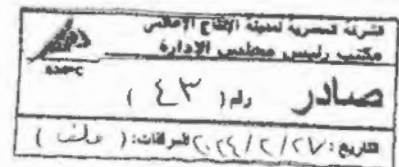 الشركة المصرية لمدينة الإنتاج الإعلامى
مكتب رئيس مجلس الإدارة
EMPC
صادر رقم ( ٤٣ )
التاريخ: ٢٠٢٤/٢/٢٧ المرفقات: ( )